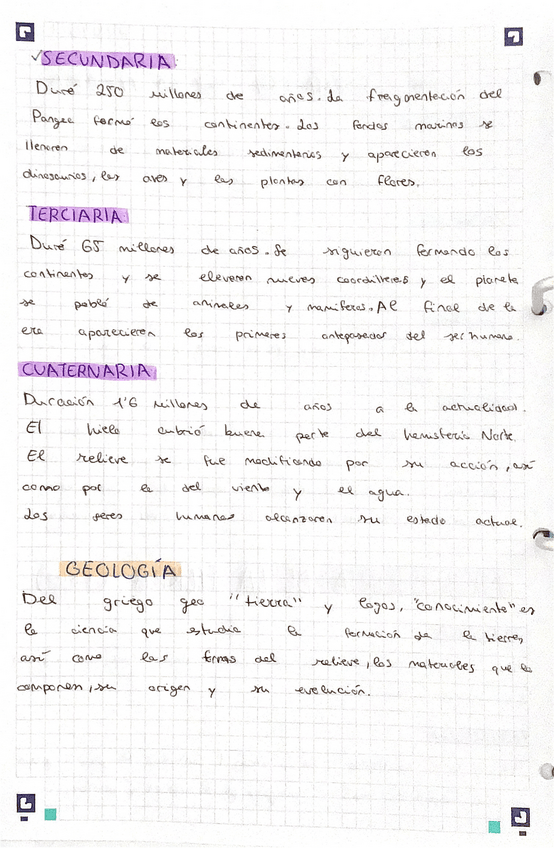 ✓SECUNDARIA:
Duró 250 millones de años. La fragmentación del
Pangea formó los continentes. Los fondos marinos se
llenaron de materiales sedimentarios y aparecieron los
dinosaurios, las aves y las plantas con flores.
TERCIARIA:
Duró 65 millones de años. Se siguieron formando los
continentes y se elevaron nuevas coordilleras y el planeta
se pobló de animales y mamíferos. Al final de la
era aparecieron los primeros antepasados del ser humano.
CUATERNARIA:
Duración 1'6 millones de años a la actualidad.
El hielo cubrió buena parte del hemisferio Norte.
El relieve se fue modificando por su acción, así
como por la del viento y el agua.
Los seres humanos alcanzaron su estado actual.
GEOLOGÍA
Del griego geo "tierra" y logos, "conocimiento" es
la ciencia que estudia la formación de la tierra,
así como las formas del relieve, los materiales que la
componen, su origen y su evolución.